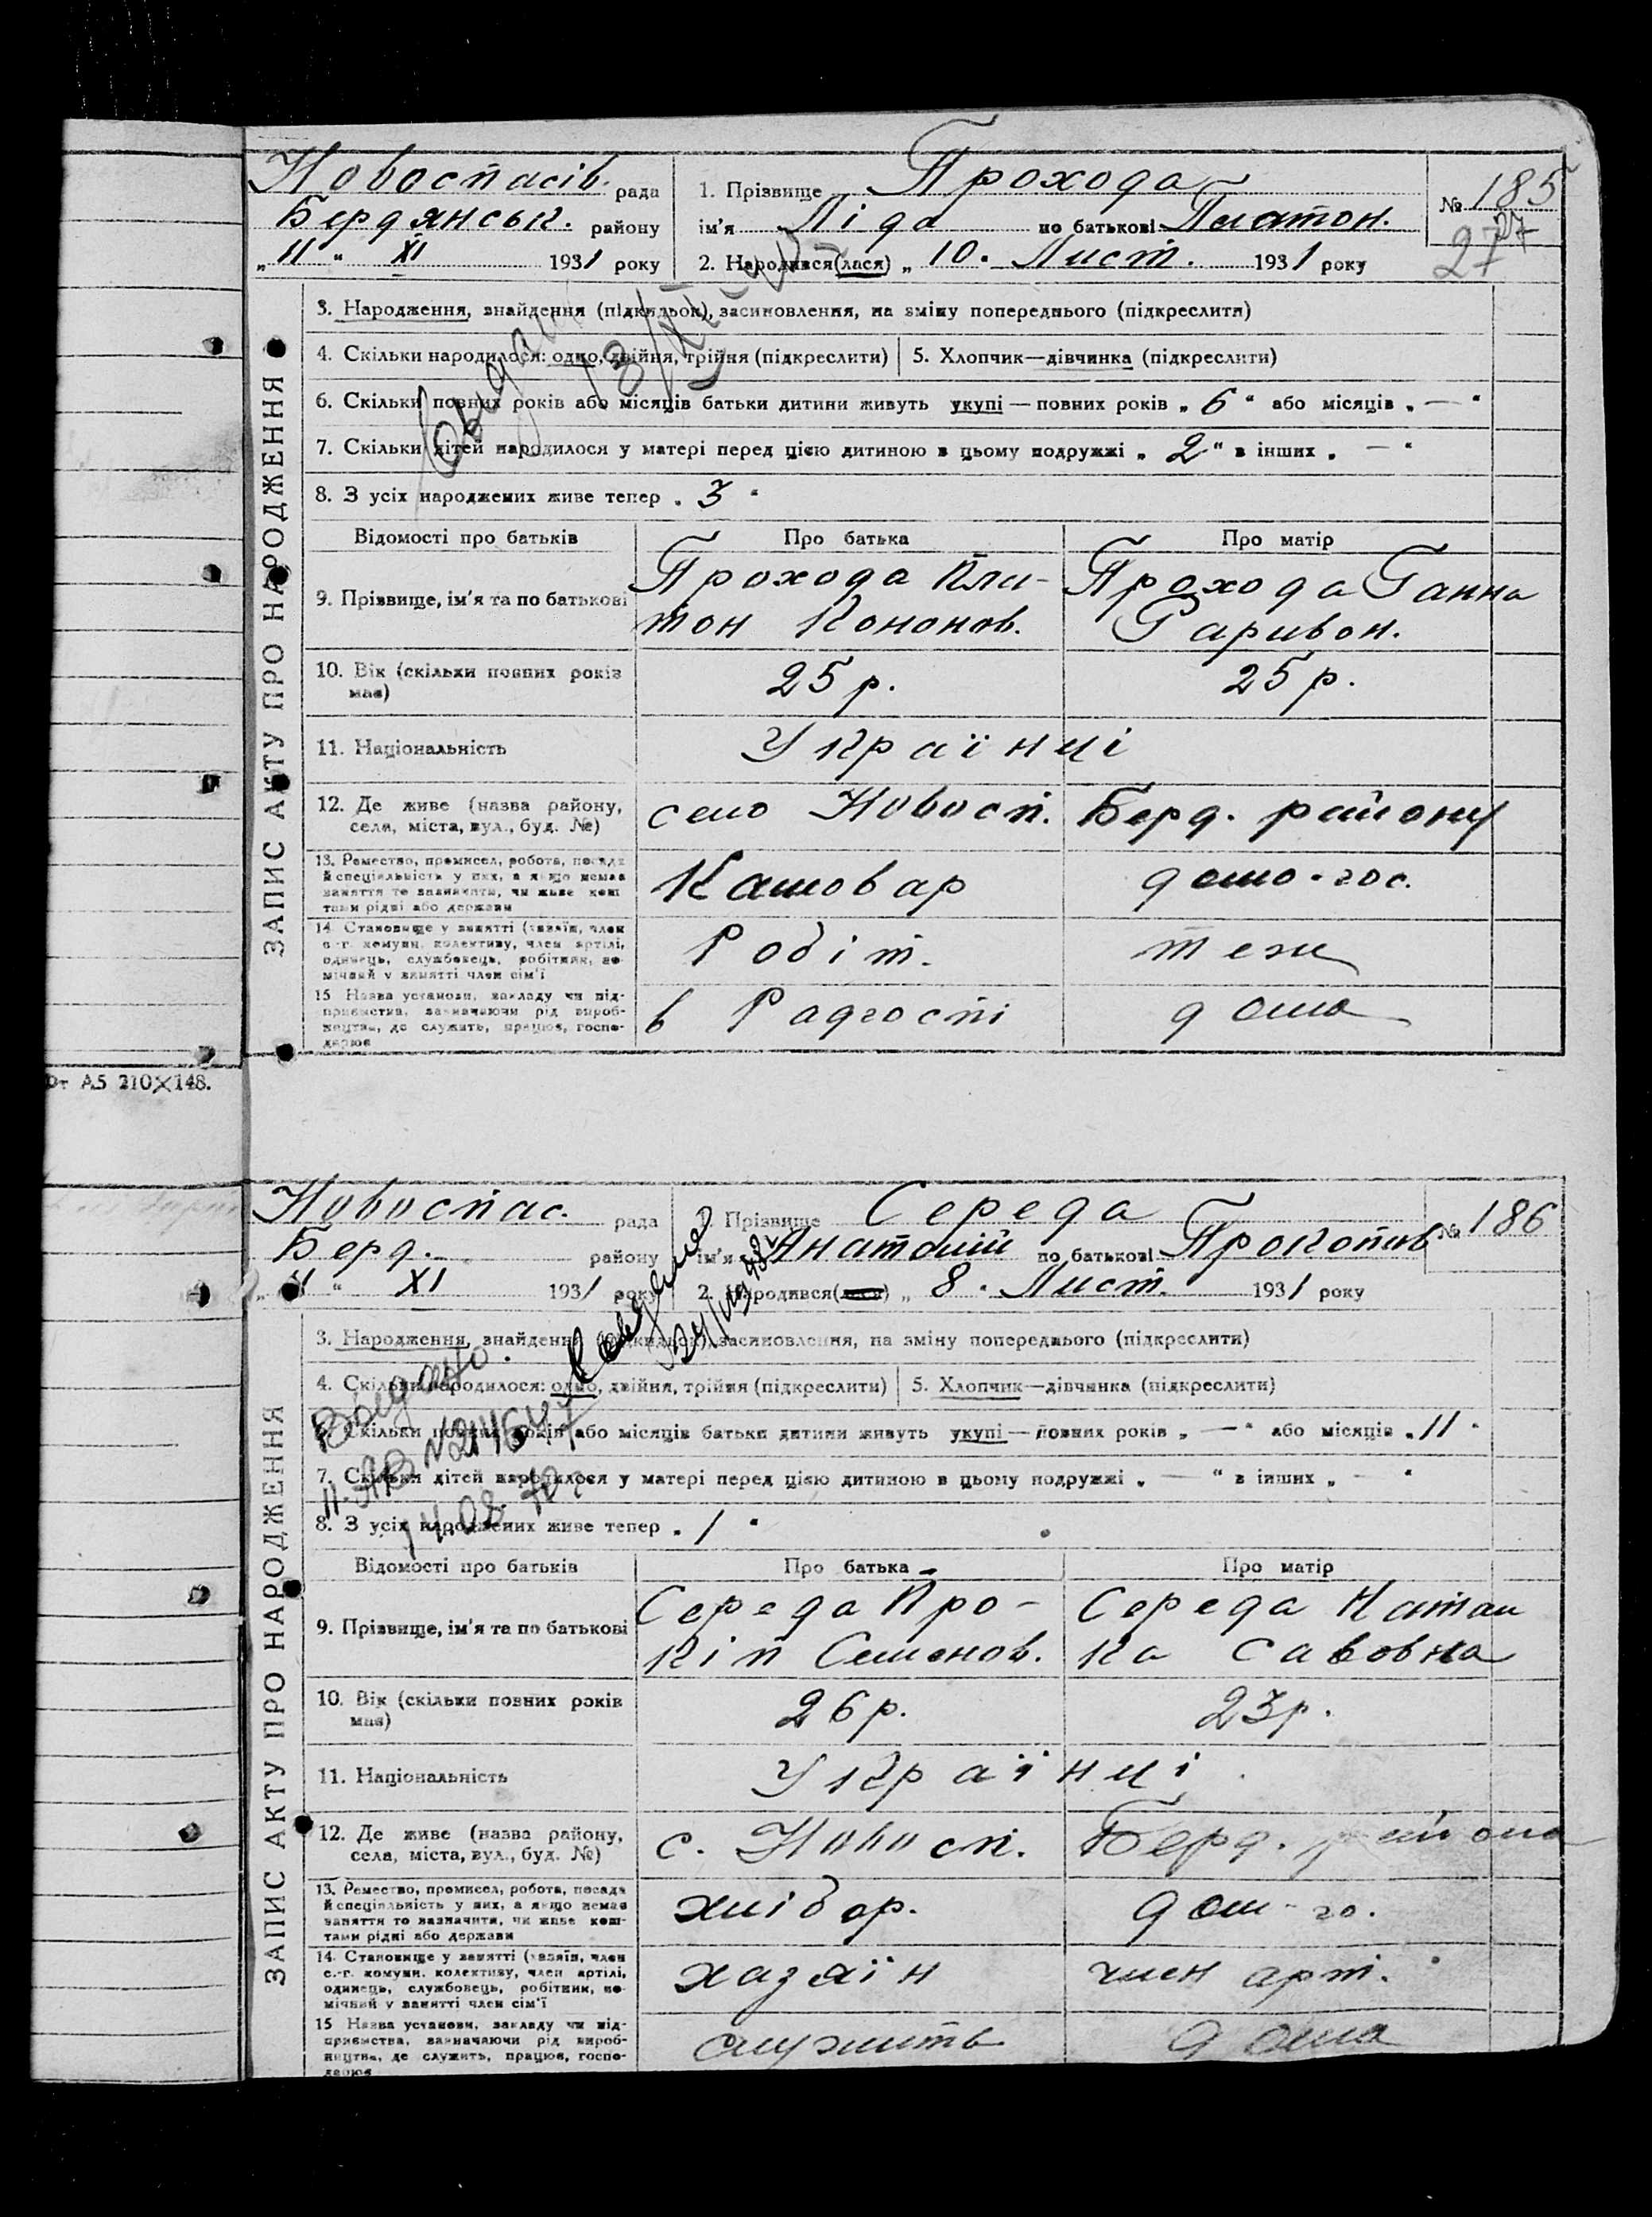 Новоспасів. рада
Бердянськ. району
„ 11 “ XI 1931 року
1. Прізвище Прохода
ім'я Ліда по батькові Платон.
2. Народився(лася) „ 10. Лист. 1931 року
№ 185
27
27
ЗАПИС АКТУ ПРО НАРОДЖЕННЯ
3. Народження, знайдення (підкидьок), засиновлення, на зміну попереднього (підкреслити)
4. Скільки народилося: одно, двійня, трійня (підкреслити)
5. Хлопчик—дівчинка (підкреслити)
6. Скільки повних років або місяців батьки дитини живуть укупі — повних років „ 6 “ або місяців „ — “
7. Скільки дітей народилося у матері перед цією дитиною в цьому подружжі „ 2 “ в інших „ — “
8. З усіх народжених живе тепер „ 3 “
Відомості про батьків Про батька Про матір
9. Прізвище, ім'я та по батькові
Прохода Пла-
тон Кононов.
Прохода Ганна
Гаривон.
10. Вік (скільки повних років
має)
25 р. 25 р.
11. Національність Українці
12. Де живе (назва району,
села, міста, вул., буд. №)
село Новосп. Берд. району
13. Ремество, промисел, робота, посада
й спеціяльність у них, а якщо немає
заняття то зазначити, чи живе кош-
тами рідні або держави
Кашовар домо-гос.
14. Становище у занятті (хазяїн, член
с.-г. комуни, колективу, член артілі,
одинець, службовець, робітник, по-
мічний у занятті член сім'ї
Робіт. теж
15 Назва установи, закладу чи під-
приємства, зазначаючи рід вироб-
ництва, де служить, працює, госпо-
дарює
в Радгоспі дома
От А5 210×148.
Новоспас. рада
Берд. району
„ 11 “ XI 1931 року
1. Прізвище Середа
ім'я Анатолій по батькові Прокопів
2. Народився(лася) „ 8. Лист. 1931 року
№ 186
ЗАПИС АКТУ ПРО НАРОДЖЕННЯ
3. Народження, знайдення (підкидьок), засиновлення, на зміну попереднього (підкреслити)
4. Скільки народилося: одно, двійня, трійня (підкреслити)
5. Хлопчик—дівчинка (підкреслити)
6. Скільки повних років або місяців батьки дитини живуть укупі — повних років „ — “ або місяців „ 11 “
7. Скільки дітей народилося у матері перед цією дитиною в цьому подружжі „ — “ в інших „ — “
8. З усіх народжених живе тепер „ 1 “
Відомості про батьків Про батька Про матір
9. Прізвище, ім'я та по батькові
Середа Про-
кіп Семенов.
Середа Натал
ка Савовна
10. Вік (скільки повних років
має)
26 р. 23 р.
11. Національність Українці
12. Де живе (назва району,
села, міста, вул., буд. №)
с. Новосп. Берд. району
13. Ремество, промисел, робота, посада
й спеціяльність у них, а якщо немає
заняття то зазначити, чи живе кош-
тами рідні або держави
хлібор. дом-го.
14. Становище у занятті (хазяїн, член
с.-г. комуни, колективу, член артілі,
одинець, службовець, робітник, по-
мічний у занятті член сім'ї
хазяїн член арт.
15 Назва установи, закладу чи під-
приємства, зазначаючи рід вироб-
ництва, де служить, працює, госпо-
дарює
служить дома